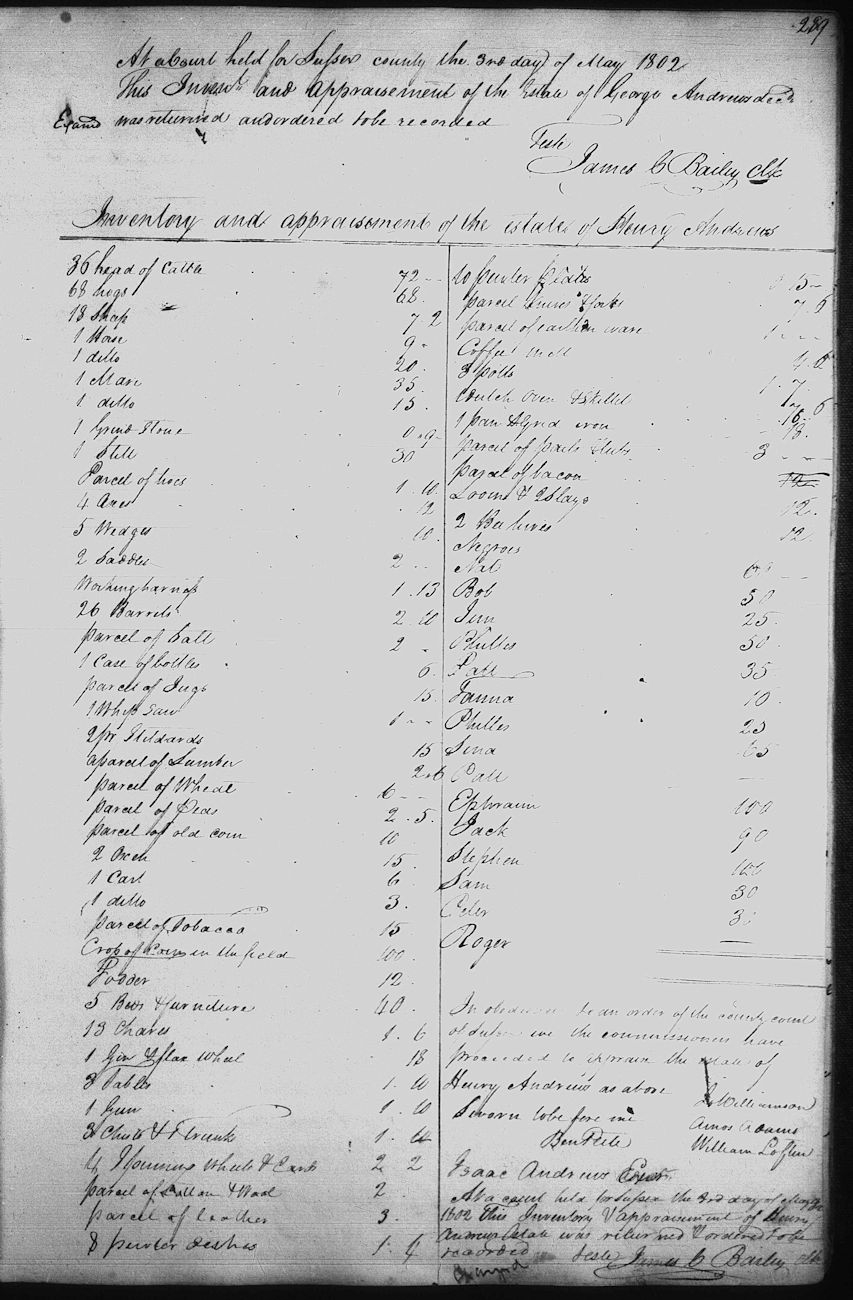 289
At a Court held for Sussex county the 3rd day of May 1802
This Invent. and appraisement of the Estate of George Andrews decd
Examd was returned and ordered to be recorded
Teste
James C Bailey Clk
Inventory and appraisement of the estate of Henry Andrews
36 head of Cattle 72 - -
68 hogs 68.
18 Sheep 7 2
1 Horse 9 -
1 ditto 20.
1 Mare 35.
1 ditto 15.
1 Grind Stone 0 " 9 -
1 Still 30
Parcel of hoes 1. 10
4 Axes 12
5 Wedges 10.
2 Saddles 2 - -
Working harness 1. 13
26 Barrels 2. 10
parcel of Salt 2 -
1 Case of bottles 6.
parcel of Jugs 15.
1 Whip Saw 1 - -
2 pr Stilards 15
a parcel of Lumber 2 " 6
parcel of Wheat 6 - -
parcel of Peas 2. 5.
parcel of old corn 10
2 Oxen 15.
1 Cart 6.
1 ditto 3.
parcel of Tobacco 15.
Crop of Corn in the field 100.
Fodder 12.
5 Beds & furniture 40.
13 Chares 1. 6
1 Gin & flax wheel 18
3 Tables 1. 10
1 Gun 1. 10
3 Chests & 1 Trunk 1.
4 Spinning Wheels & Cards 2 2
parcel of Cotton & Wool 2.
parcel of leather 3.
8 pewter dishes 1. 4
10 pewter Plates 15 -
parcel Knives & forks 7 6
parcel of earthen ware 1 - -
Coffee mill 4. 6
3 potts 1. 7.
Dutch Oven & Skillet 7 6
1 pan & Grid iron
parcel of pails & tubs 18.
parcel of bacon 3 - -
Loom & 2 Slays
2 Bee hives 12.
Negroes
Nat
Bob 50
Jim 25.
Phillis 50.
Patt 35
Fanna 10.
Phillis 25
Sina 65
Patt -
Ephraim 100
Jack 90
Stephen 100
Sam 30
Peter
Roger -
In obedience to an order of the county court
of Sussex we the commissioners have
proceeded to appraise the estate of
Henry Andrews as above
Williamson
Sworn to before me Amos Adams
Ben William Loftin
Isaac Andrews Exor
At a court held for Sussex the 3rd day of May
1802 This Inventory & appraisement of Henry
Andrews Estate was returned & ordered to be
recorded Teste James C Bailey Clk
Examined